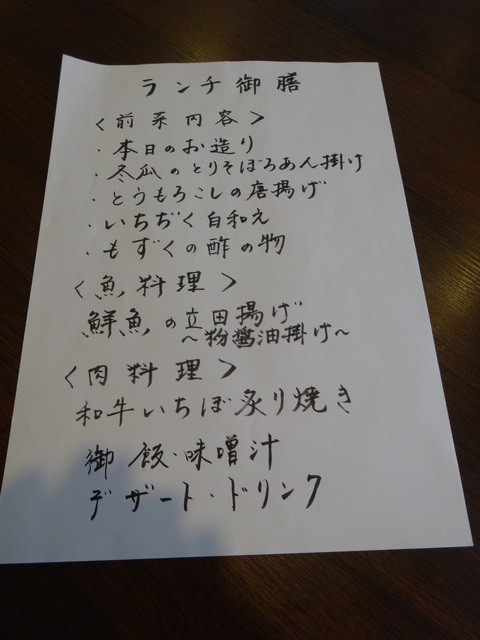 ランチ御膳
<前菜内容>
・本日のお造り
・冬瓜のとりそぼろあん掛け
・とうもろこしの唐揚げ
・いちぢく白和え
・もずくの酢の物
<魚料理>
鮮魚の立田揚げ
~粉醤油掛け~
<肉料理>
和牛いちぼ炙り焼き
御飯・味噌汁
デザート・ドリンク